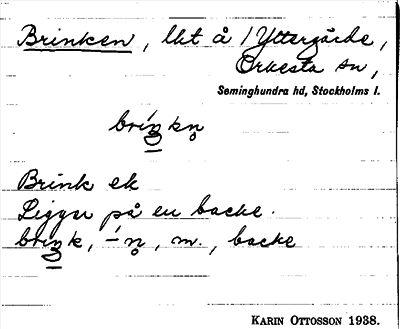 Brinken, lkt å 1 Yttergärde,
Orkesta sn,
Seminghundra hd, Stockholms l.
briŋkn̥
Brink ek
Ligger på en backe.
briŋk, -n̥, m., backe
KARIN OTTOSSON 1938.